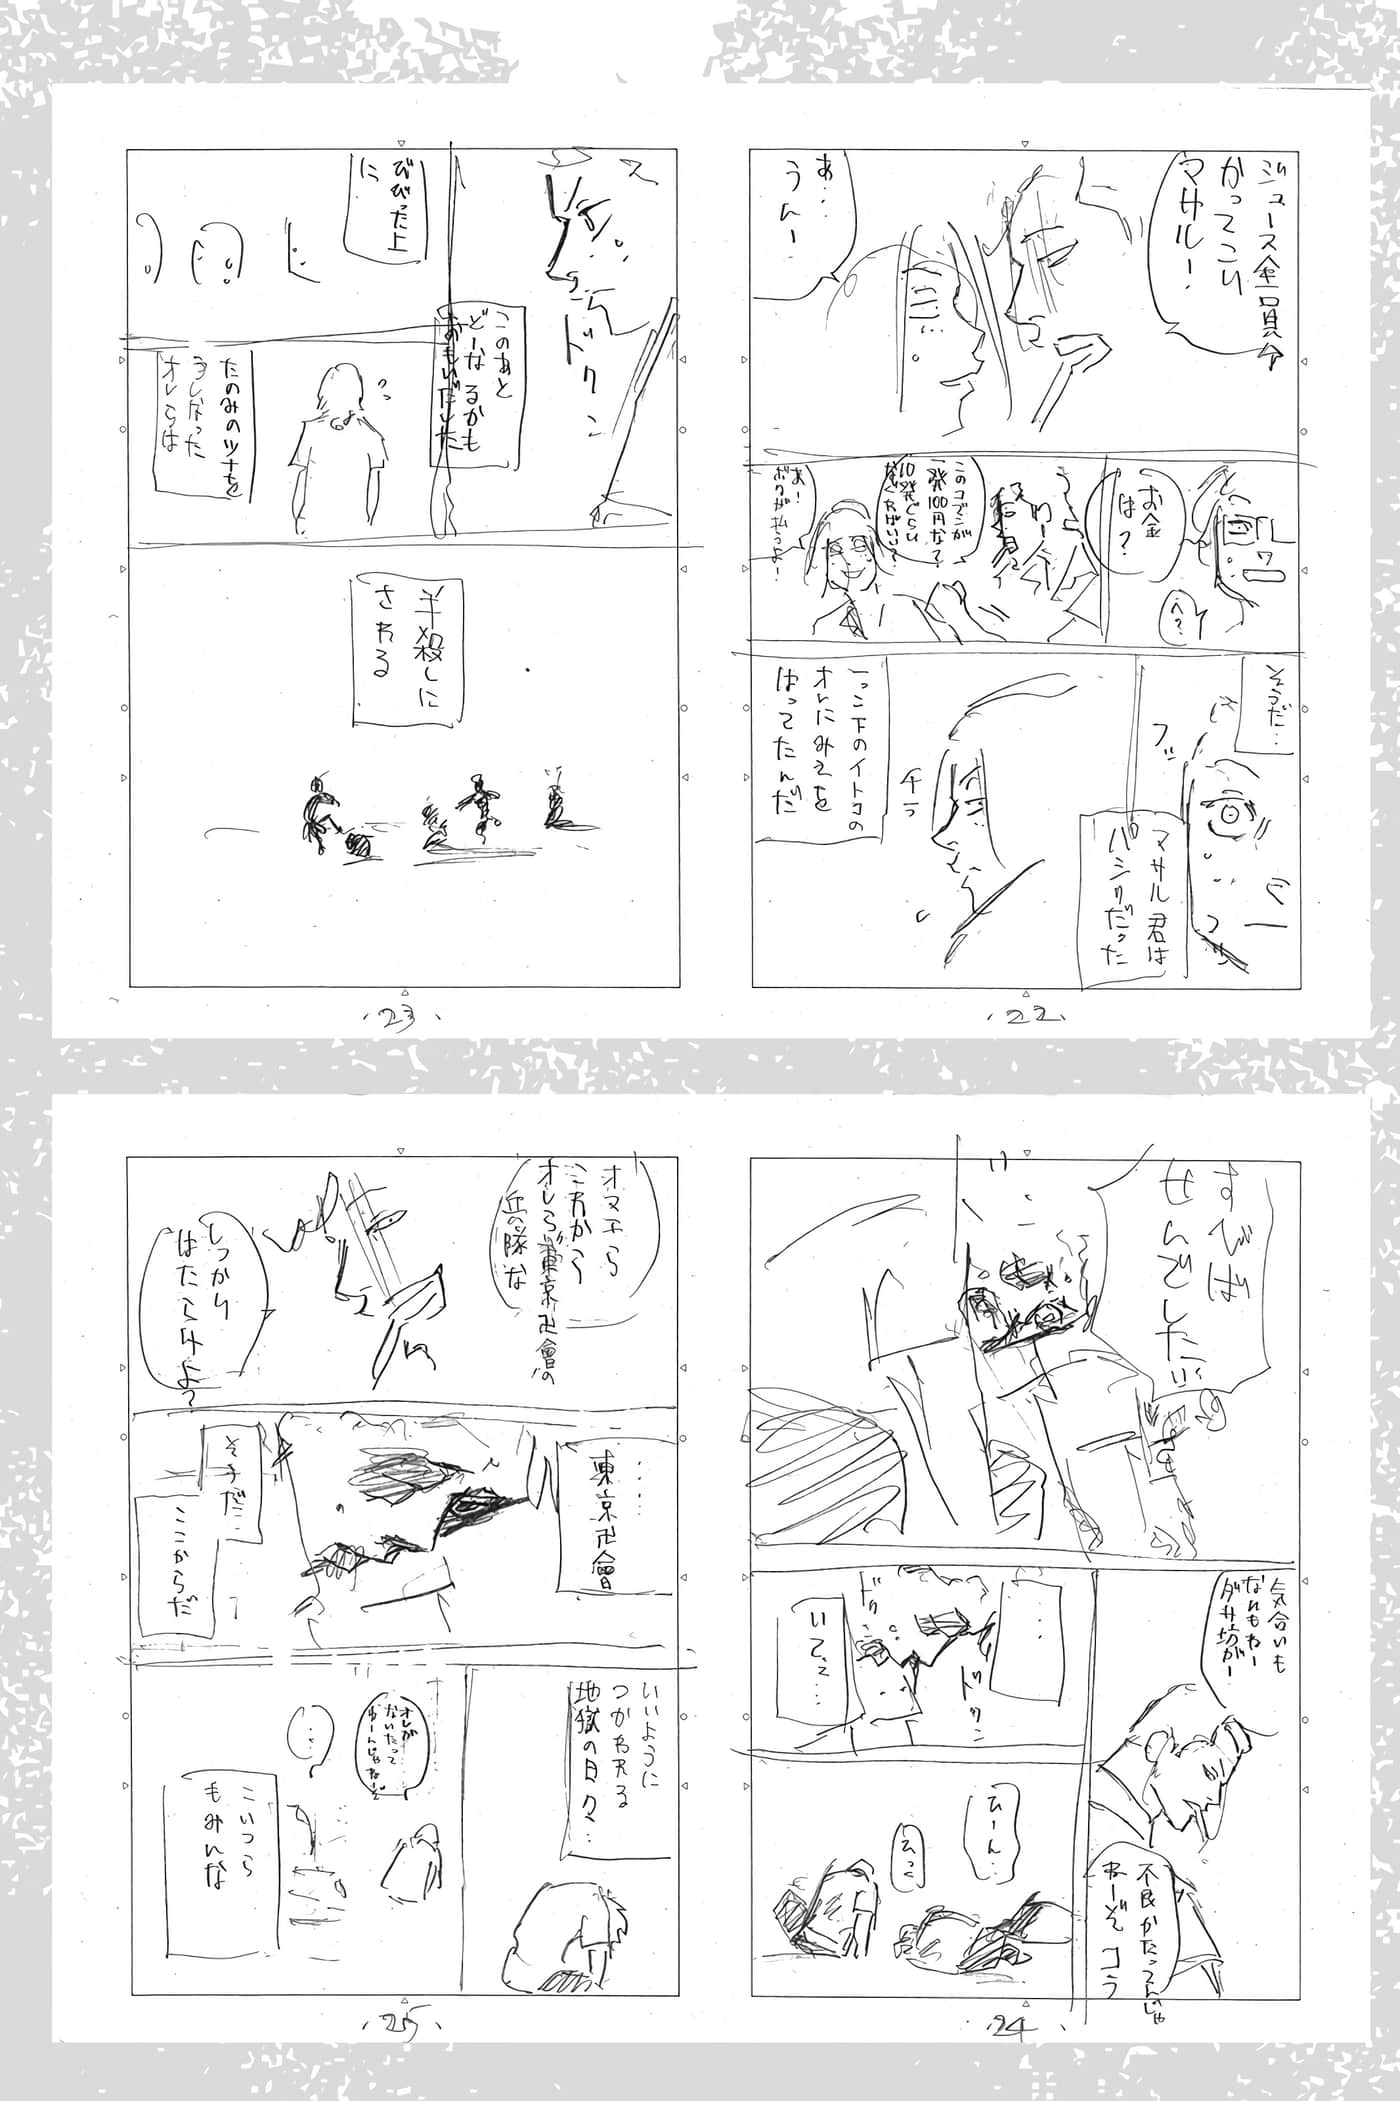 ジュース全員分
かってこい
マサル！
あ…
うん！
お金
は？
へ？
このコブシが
一発100円な？
10発ぐらい
なぐればいい？
あ！
ボクが払うよ！
そうだ…
マサル君は
パシリだった
一コ下のイトコの
オレにみえを
はってたんだ
チラ
・22・
ドクン
このあと
どーなるかも
おもいだした
びびった上
に
たのみのツナを
オレらは
半殺しに
される
・23・
すびば
せんでした
気合いも
なんもねー
ダサ坊がー
不良かたってんじゃ
ねーぞ コラ
…
ドクン
ドクン
いてっ…
ひーん…
ひっく
・24・
オマエら
今日から
オレら"東京卍會"の
兵隊な
しっかり
はたらけよ？
……
東京卍會
そーだ…
ここからだ
いいように
つかわれる
地獄の日々…
オレが
ないたって
わーんじゃねーぞ
…
こいつら
もみんな
・25・